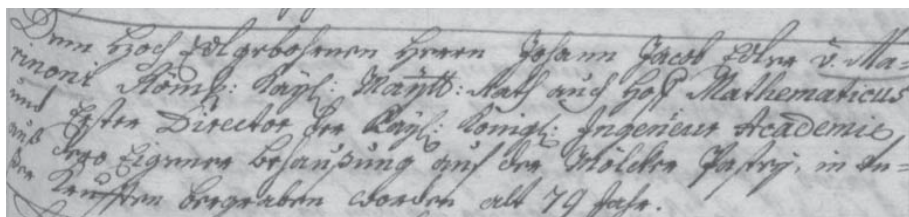 Dem Hoch Edlgebohrnen Herrn Johann Jacob Edler v. Ma=
rinoni Römis: Kayl: Maytt: Rath auch Hoff Mathematicus
und Erster Director der Kayl: Königl: Ingenieur Academie
auß dero Eigener behaußung auf der Mölcker Pastey, in du=
der Krufften begraben worden alt 79 Jahr.